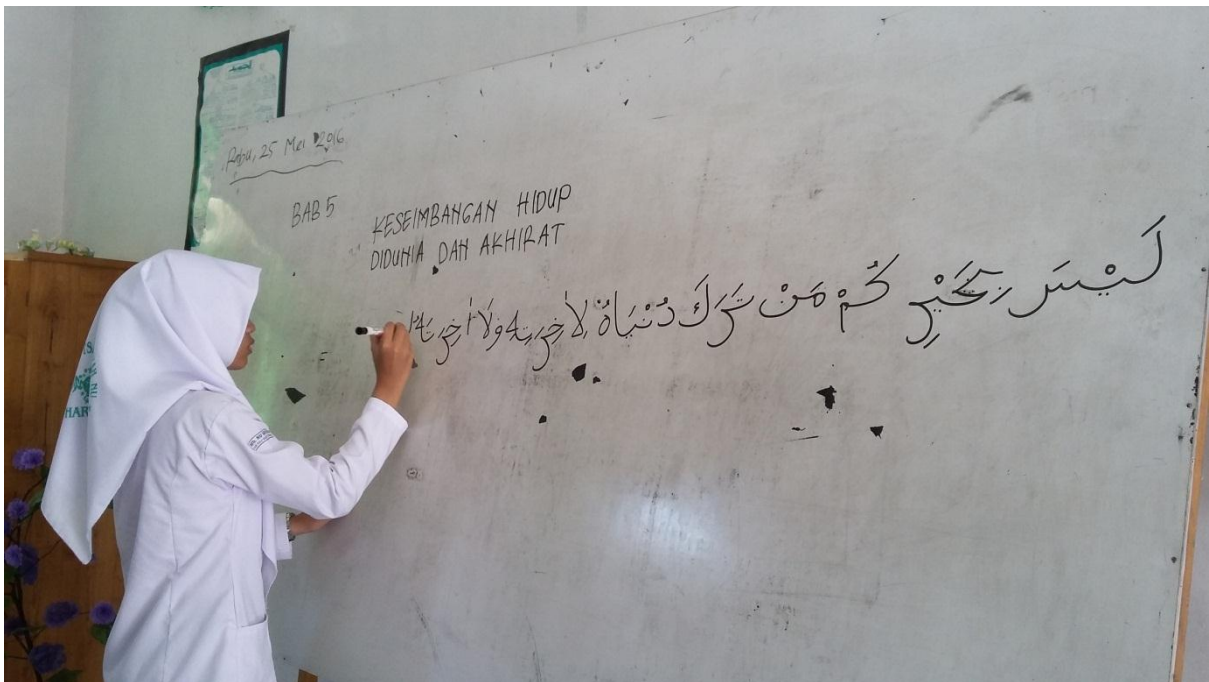 Rabu, 25 Mei 2016
BAB 5
KESEIMBANGAN HIDUP
DIDUNIA DAN AKHIRAT
لَيْسَ بِخَيْرِ كُمْ مَنْ تَرَكَ دُنْيَاهُ لِاٰخِرَتِهِ وَلَا اٰخِرَتَهُ